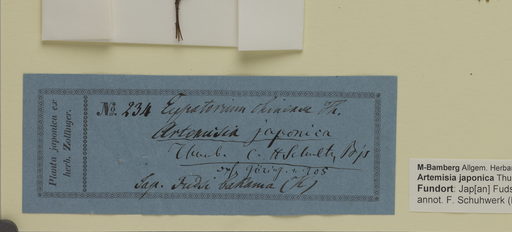 Planta japonica ex
herb. Zollinger.
№ 234 Eupatorium chinense Th.
Artemisia japonica
Thunb. C. H. Schultz Bip
Göring n. 105
Jap. Fudsi (H)
M-Bamberg Allgem. Herba
Artemisia japonica Thu
Fundort: Jap[an] Fuds
annot. F. Schuhwerk (